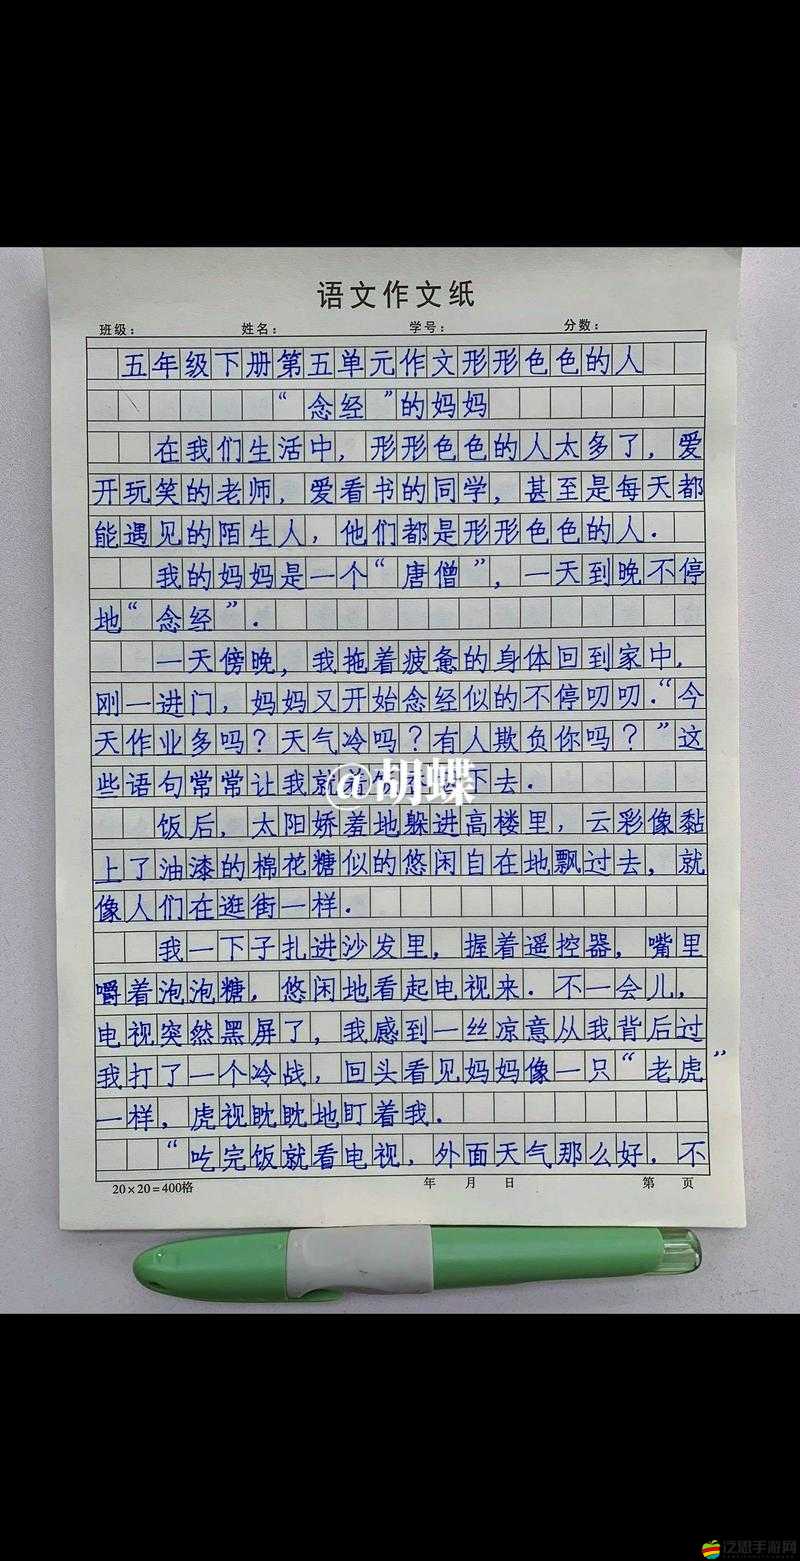 语文作文纸
班级： 姓名： 学号： 分数：
五年级下册第五单元作文形形色色的人
“念经”的妈妈
在我们生活中，形形色色的人太多了，爱
开玩笑的老师，爱看书的同学，甚至是每天都
能遇见的陌生人，他们都是形形色色的人．
我的妈妈是一个“唐僧”，一天到晚不停
地“念经”．
一天傍晚，我拖着疲惫的身体回到家中，
刚一进门，妈妈又开始念经似的不停叨叨．“今
天作业多吗？天气冷吗？有人欺负你吗？”这
些语句常常让我就着 下去．
@胡蝶
饭后，太阳娇羞地躲进高楼里，云彩像黏
上了油漆的棉花糖似的悠闲自在地飘过去，就
像人们在逛街一样．
我一下子扎进沙发里，握着遥控器，嘴里
嚼着泡泡糖，悠闲地看起电视来．不一会儿，
电视突然黑屏了，我感到一丝凉意从我背后过
我打了一个冷战，回头看见妈妈像一只“老虎”
一样，虎视眈眈地盯着我．
“吃完饭就看电视，外面天气那么好．不
20×20=400格 年 月 日 第 页
亿恩手游网